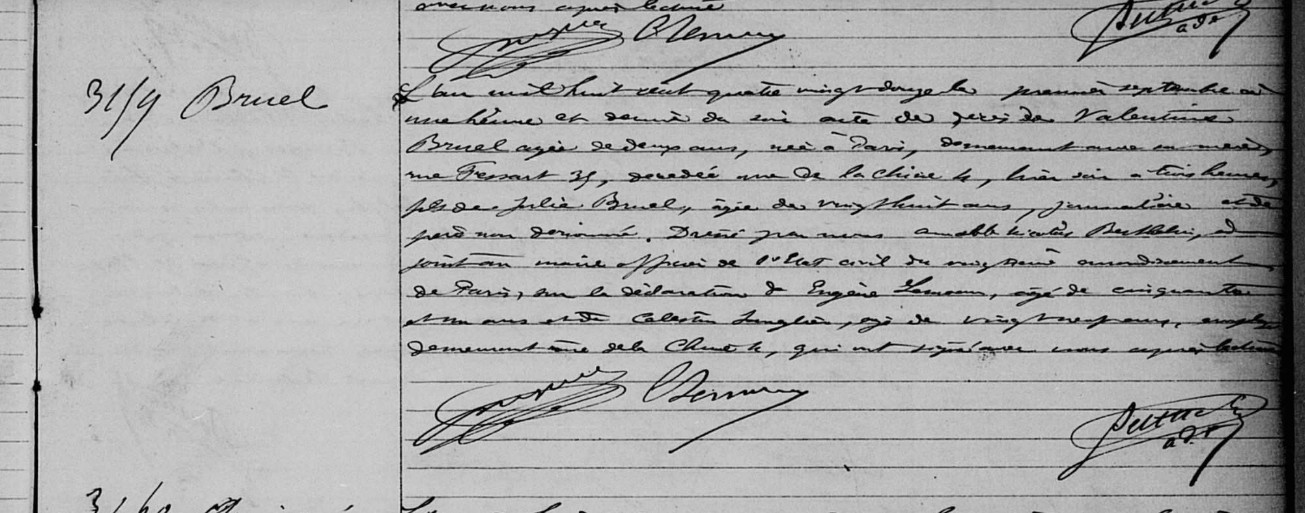 avec nous après lecture
3119 Bruel
L'an mil huit cent quatre vingt douze le premier septembre à
une heure et demie du soir acte de décès de Valentine
Bruel agée de deux ans, née à Paris, demeurant avec sa mère,
rue Fessart 39, décédée rue de la Chine 4, hier soir à trois heures,
fille de Julie Bruel, âgée de vingt huit ans, journalière et de
père non dénommé. Dressé par nous Berthelin, ad
joint au maire officier de l'Etat civil du vingtième arrondissement
de Paris, sur la déclaration d'Eugène, âgé de cinquante
et un ans et de Célestin, agé de vingt neuf ans, employés
demeurant rue de la Chine 4, qui ont signé avec nous après lecture
adt